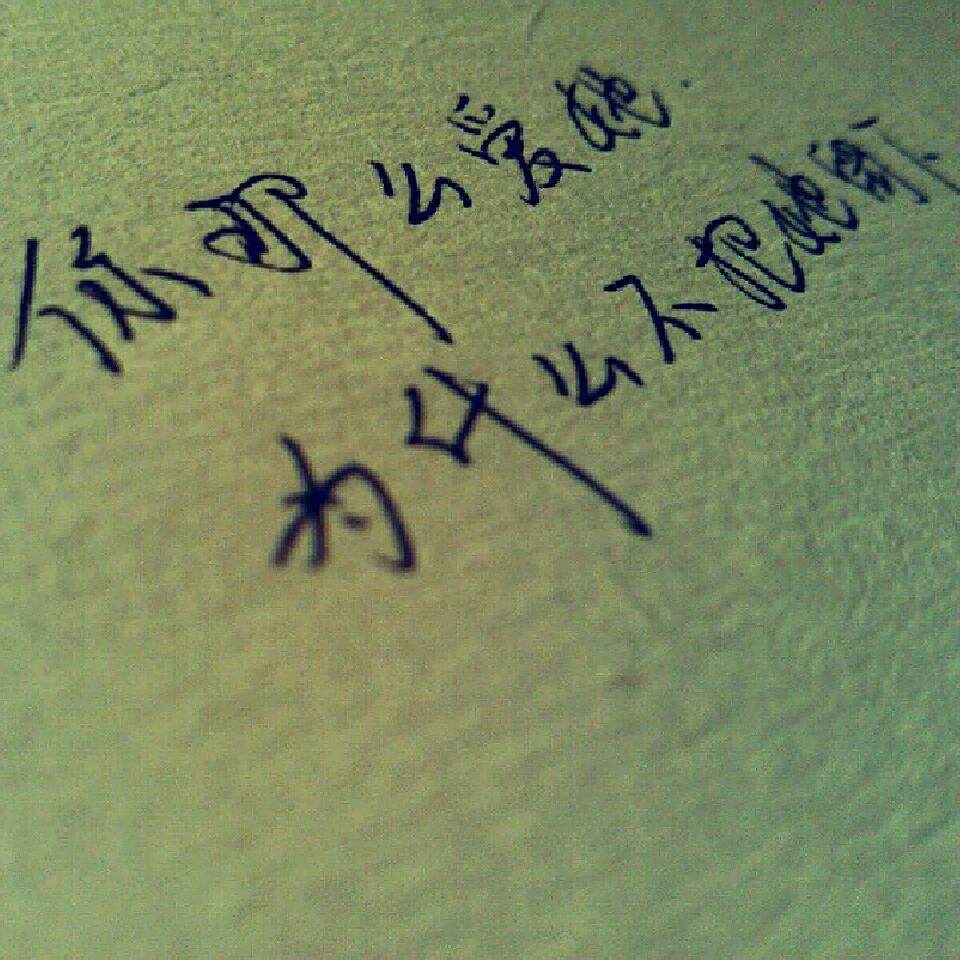 你那么爱她.
为什么不把她留下.